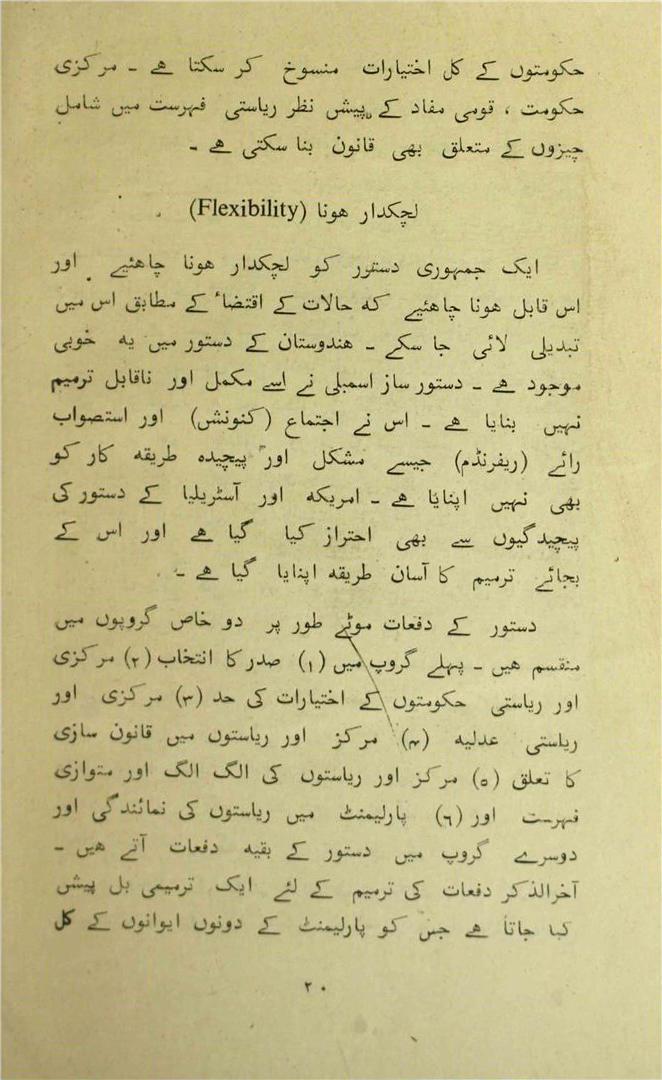 حکومتوں کے کل اختیارات منسوخ کر سکتا ھے ۔ مرکزی
حکومت ، قومی مفاد کے پیش نظر ریاستی فہرست میں شامل
چیزوں کے متعلق بھی قانون بنا سکتی ھے ۔
لچکدار ھونا (Flexibility)
ایک جمہوری دستور کو لچکدار ھونا چاھئیے اور
اس قابل ھونا چاھئیے کہ حالات کے اقتضاٴ کے مطابق اس میں
تبدیلی لائی جا سکے ۔ ھندوستان کے دستور میں یہ خوبی
موجود ھے ۔ دستور ساز اسمبلی نے اسے مکمل اور ناقابل ترمیم
نہیں بنایا ھے ۔ اس نے اجتماع (کنونشن) اور استصواب
رائے (ریفرنڈم) جیسے مشکل اور پیچیدہ طریقہ کار کو
بھی نہیں اپنایا ھے ۔ امریکہ اور آسٹریلیا کے دستور کی
پیچیدگیوں سے بھی احتراز کیا گیا ھے اور اس کے
بجائے ترمیم کا آسان طریقہ اپنایا گیا ھے ۔
دستور کے دفعات موٹے طور پر دو خاص گروپوں میں
منقسم ھیں ۔ پہلے گروپ میں (۱) صدر کا انتخاب (۲) مرکزی
اور ریاستی حکومتوں کے اختیارات کی حد (۳) مرکزی اور
ریاستی عدلیہ (۴) مرکز اور ریاستوں میں قانون سازی
کا تعلق (۵) مرکز اور ریاستوں کی الگ الگ اور متوازی
فہرست اور (۶) پارلیمنٹ میں ریاستوں کی نمائندگی اور
دوسرے گروپ میں دستور کے بقیہ دفعات آتے ھیں ۔
آخرالذکر دفعات کی ترمیم کے لئے ایک ترمیمی بل پیش
کیا جاتا ھے جس کو پارلیمنٹ کے دونوں ایوانوں کے کل
۲۰